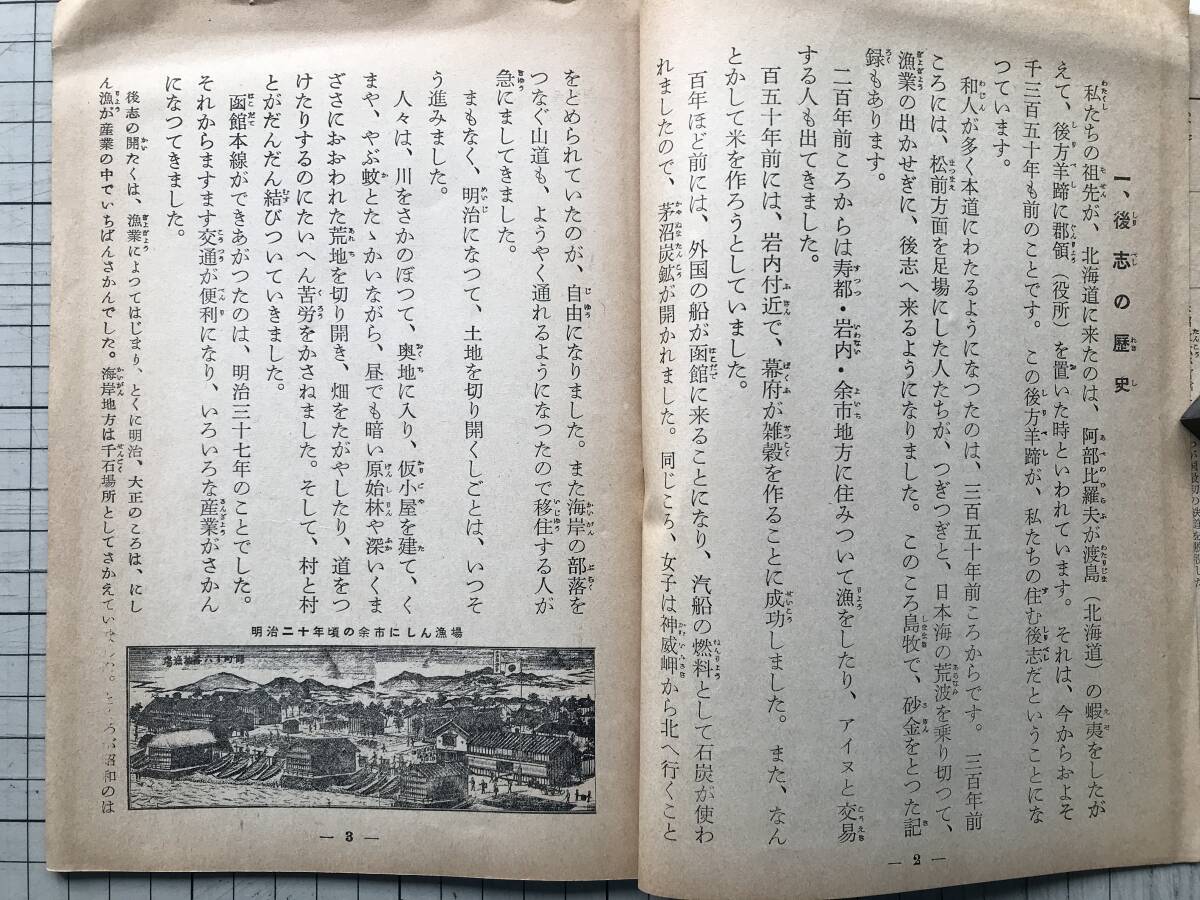 一、後志の歴史
私たちの祖先が、北海道に来たのは、阿部比羅夫が渡島(北海道)の蝦夷をしたが
えて、後方羊蹄に郡領(役所)を置いた時といわれています。それは、今からおよそ
千三百五十年も前のことです。この後方羊蹄が、私たちの住む後志だということにな
つています。
和人が多く本道にわたるようになつたのは、三百五十年前ころからです。三百年前
ころには、松前方面を足場にした人たちが、つぎつぎと、日本海の荒波を乗り切つて、
漁業の出かせぎに、後志へ来るようになりました。このころ島牧で、砂金をとつた記
録もあります。
二百年前ころからは寿都・岩内・余市地方に住みついて漁をしたり、アイヌと交易
する人も出てきました。
百五十年前には、岩内付近で、幕府が雑穀を作ることに成功しました。また、なん
とかして米を作ろうとしていました。
百年ほど前には、外国の船が函館に来ることになり、汽船の燃料として石炭が使わ
れましたので、茅沼炭鉱が開かれました。同じころ、女子は神威岬から北へ行くこと
— 2 —
をとめられていたのが、自由になりました。また海岸の部落を
つなぐ山道も、ようやく通れるようになつたので移住する人が
急にましてきました。
まもなく、明治になつて、土地を切り開くしごとは、いつそ
う進みました。
人々は、川をさかのぼつて、奥地に入り、仮小屋を建て、く
まや、やぶ蚊とたゝかいながら、昼でも暗い原始林や深いくま
ざさにおおわれた荒地を切り開き、畑をたがやしたり、道をつ
けたりするのにたいへん苦労をかさねました。そして、村と村
とがだんだん結びついていきました。
函館本線ができあがつたのは、明治三十七年のことでした。
それからますます交通が便利になり、いろいろな産業がさかん
になつてきました。
後志の開たくは、漁業によつてはじまり、とくに明治、大正のころは、にし
ん漁が産業の中でいちばんさかんでした。海岸地方は千石場所としてさかえてい
昭和のは
明治二十年頃の余市にしん漁場
— 3 —